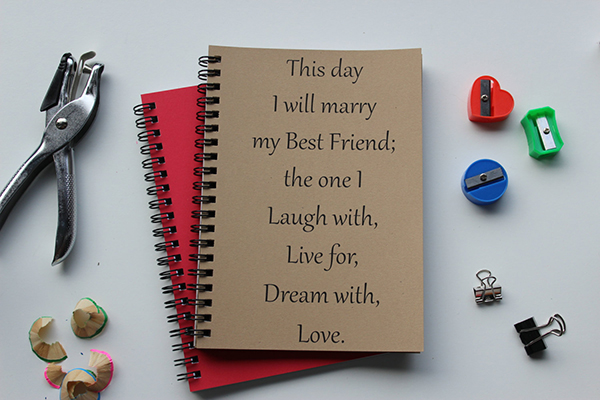 This day
I will marry
my Best Friend;
the one I
Laugh with,
Live for,
Dream with,
Love.